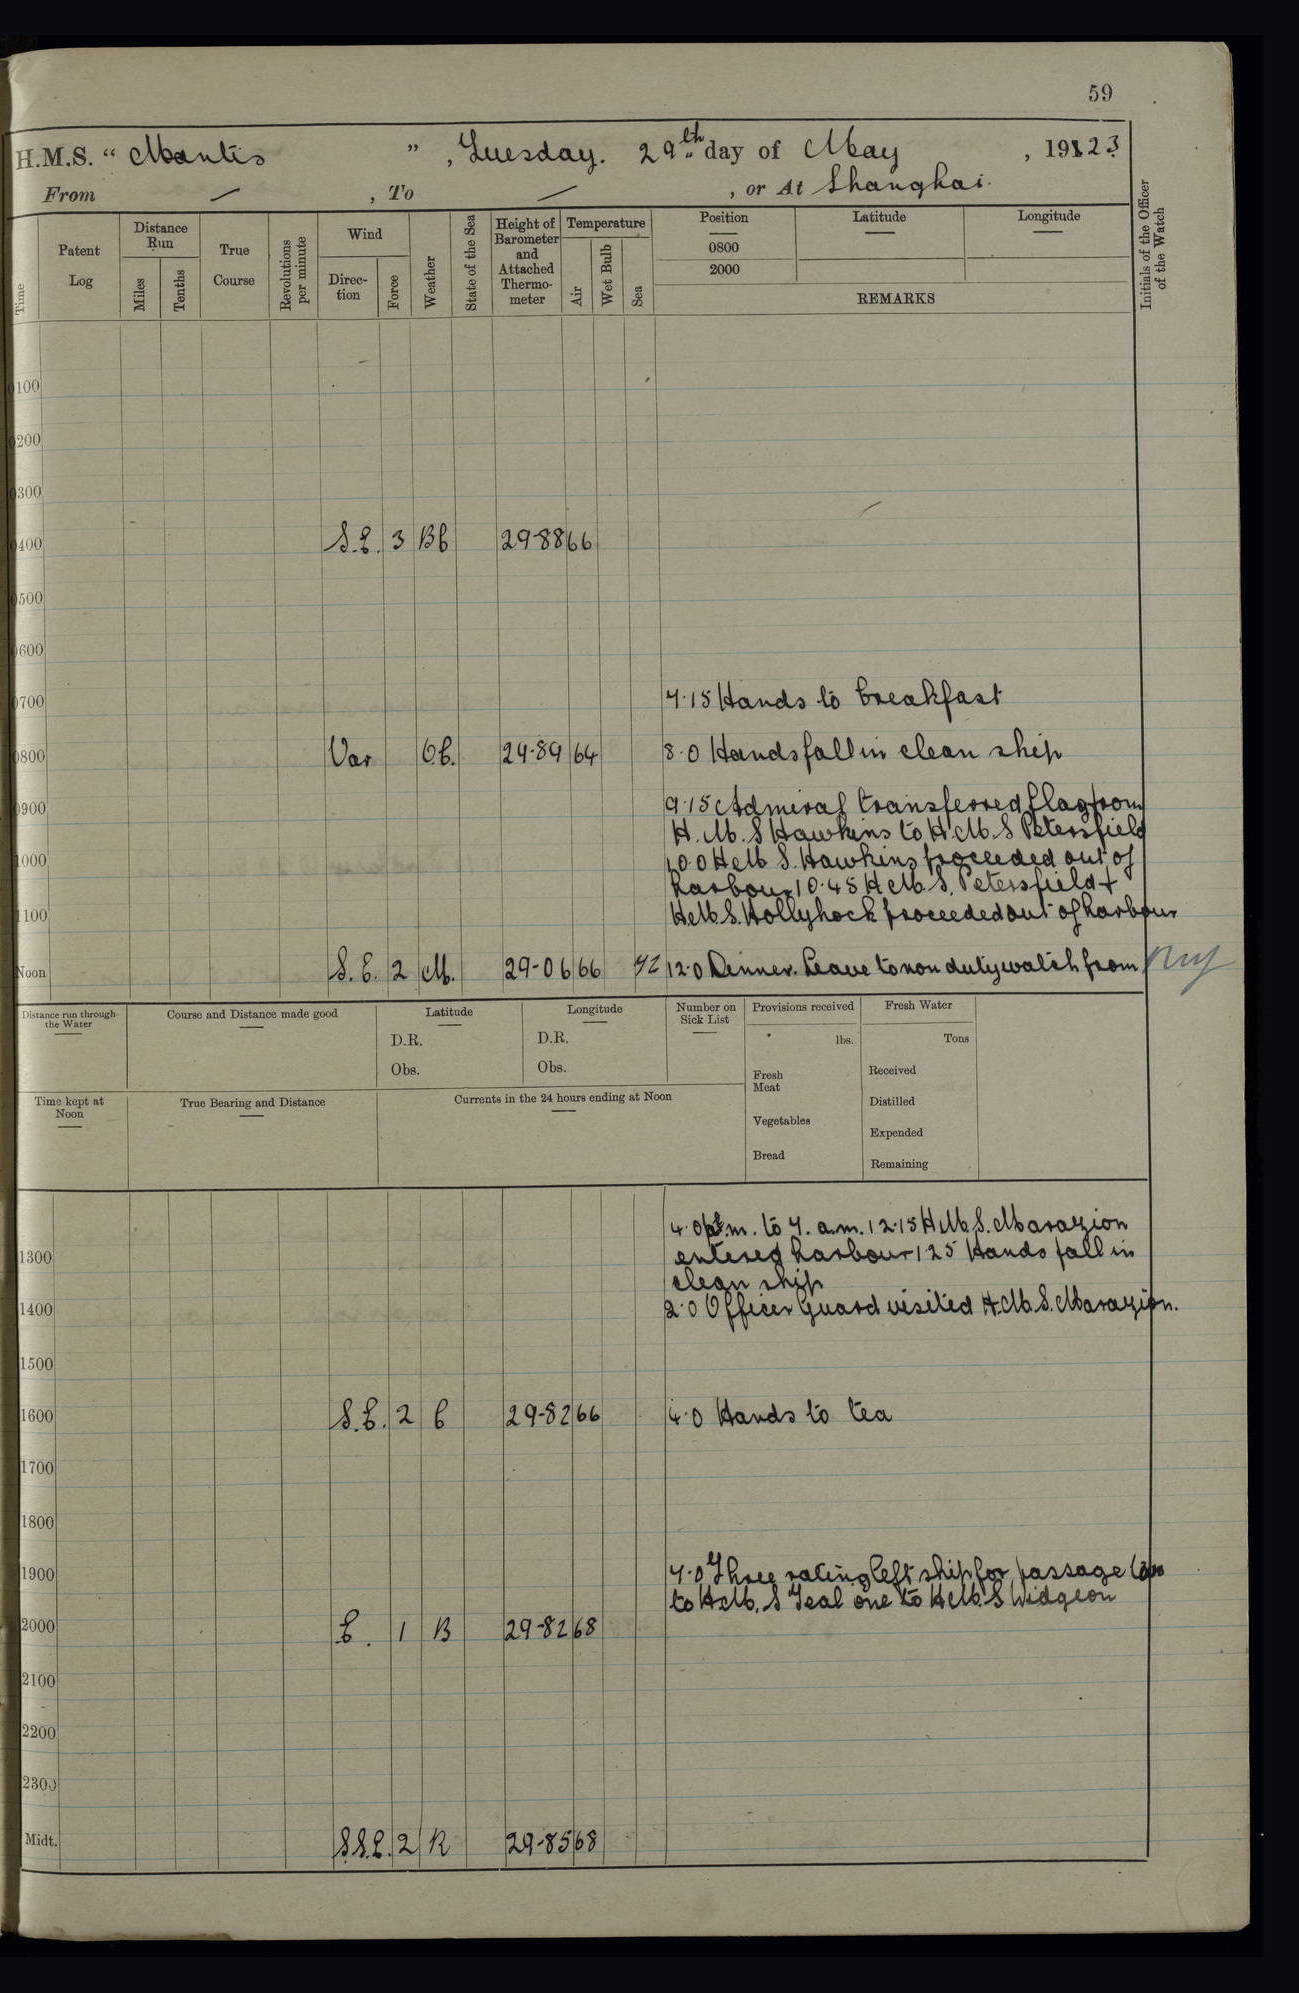 59
H.M.S. “ Mantis ” , Tuesday. 29th day of May , 1923
From — , To — , or At Shanghai.
Time
Patent Log
Distance Run
Miles
Tenths
True Course
Revolutions per minute
Wind
Direction
Force
Weather
State of the Sea
Height of Barometer and Attached Thermometer
Temperature
Air
Wet Bulb
Sea
Position
0800
2000
Latitude
Longitude
REMARKS
Initials of the Officer of the Watch
0100
0200
0300
0400 S.E. 3 Bc 29-88 66
0500
0600
0700 7.15 Hands to breakfast
0800 Var O.C. 29-89 64 8.0 Hands fall in clean ship
0900 9.15 Admiral transferred flag from
H.M.S Hawkins to H.M.S Petersfield
1000 10.0 H.M.S. Hawkins proceeded out of
harbour 10.45 H.M.S. Petersfield +
1100 H.M.S. Hollyhock proceeded out of harbour
Noon S.E. 2 M. 29-06 66 72 12.0 Dinner. Leave to non duty watch from
Distance run through the Water
Course and Distance made good
Latitude
D.R.
Obs.
Longitude
D.R.
Obs.
Number on Sick List
Provisions received
lbs.
Fresh Meat
Vegetables
Bread
Fresh Water
Tons
Received
Distilled
Expended
Remaining
Time kept at Noon
True Bearing and Distance
Currents in the 24 hours ending at Noon
4.0 p.m. to 7. a.m. 12.15 H.M.S. Marazion
1300 entered harbour 1.25 Hands fall in
clean ship
1400 2.0 Officer Guard visited H.M.S. Marazion.
1500
1600 S.E. 2 C 29-82 66 4.0 Hands to tea
1700
1800
1900 7.0 Three rating left ship for passage two
to H.M.S Teal one to H.M.S Widgeon
2000 E. 1 B 29-82 68
2100
2200
2300
Midt. S.S.E. 2 R 29-85 68